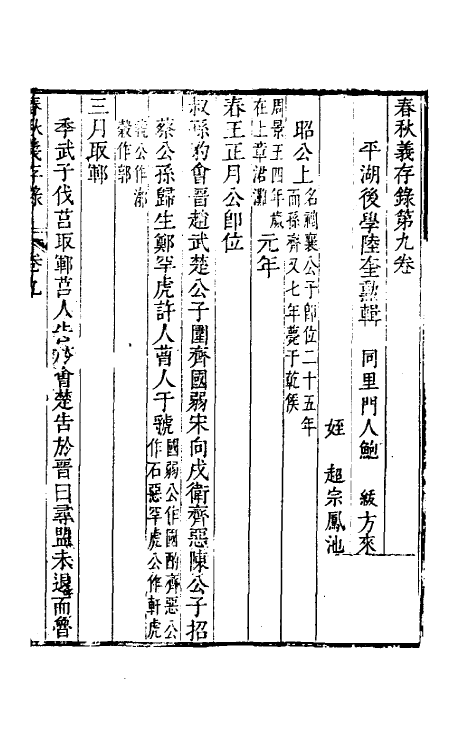 春秋義存錄第九卷
平湖後學陸奎勲輯 同里門人鮑 緩方來
姪 超宗鳳池
昭公上
名禂襄公子即位二十五年
而孫齊又七年薨于乾侯
周景王四年歲
在上章涒灘
元年
春王正月公即位
叔孫豹會晉趙武楚公子圍齊國弱宋向戌衛齊惡陳公子招
蔡公孫歸生鄭罕虎許人曹人于虢
國弱公作國酌齊惡公
作石惡罕虎公作軒虎
虢公作漷
穀作郭
三月取鄆
季武子伐莒取鄆莒人告於會楚告於晉曰尋盟未退而魯
春秋義存錄 卷九